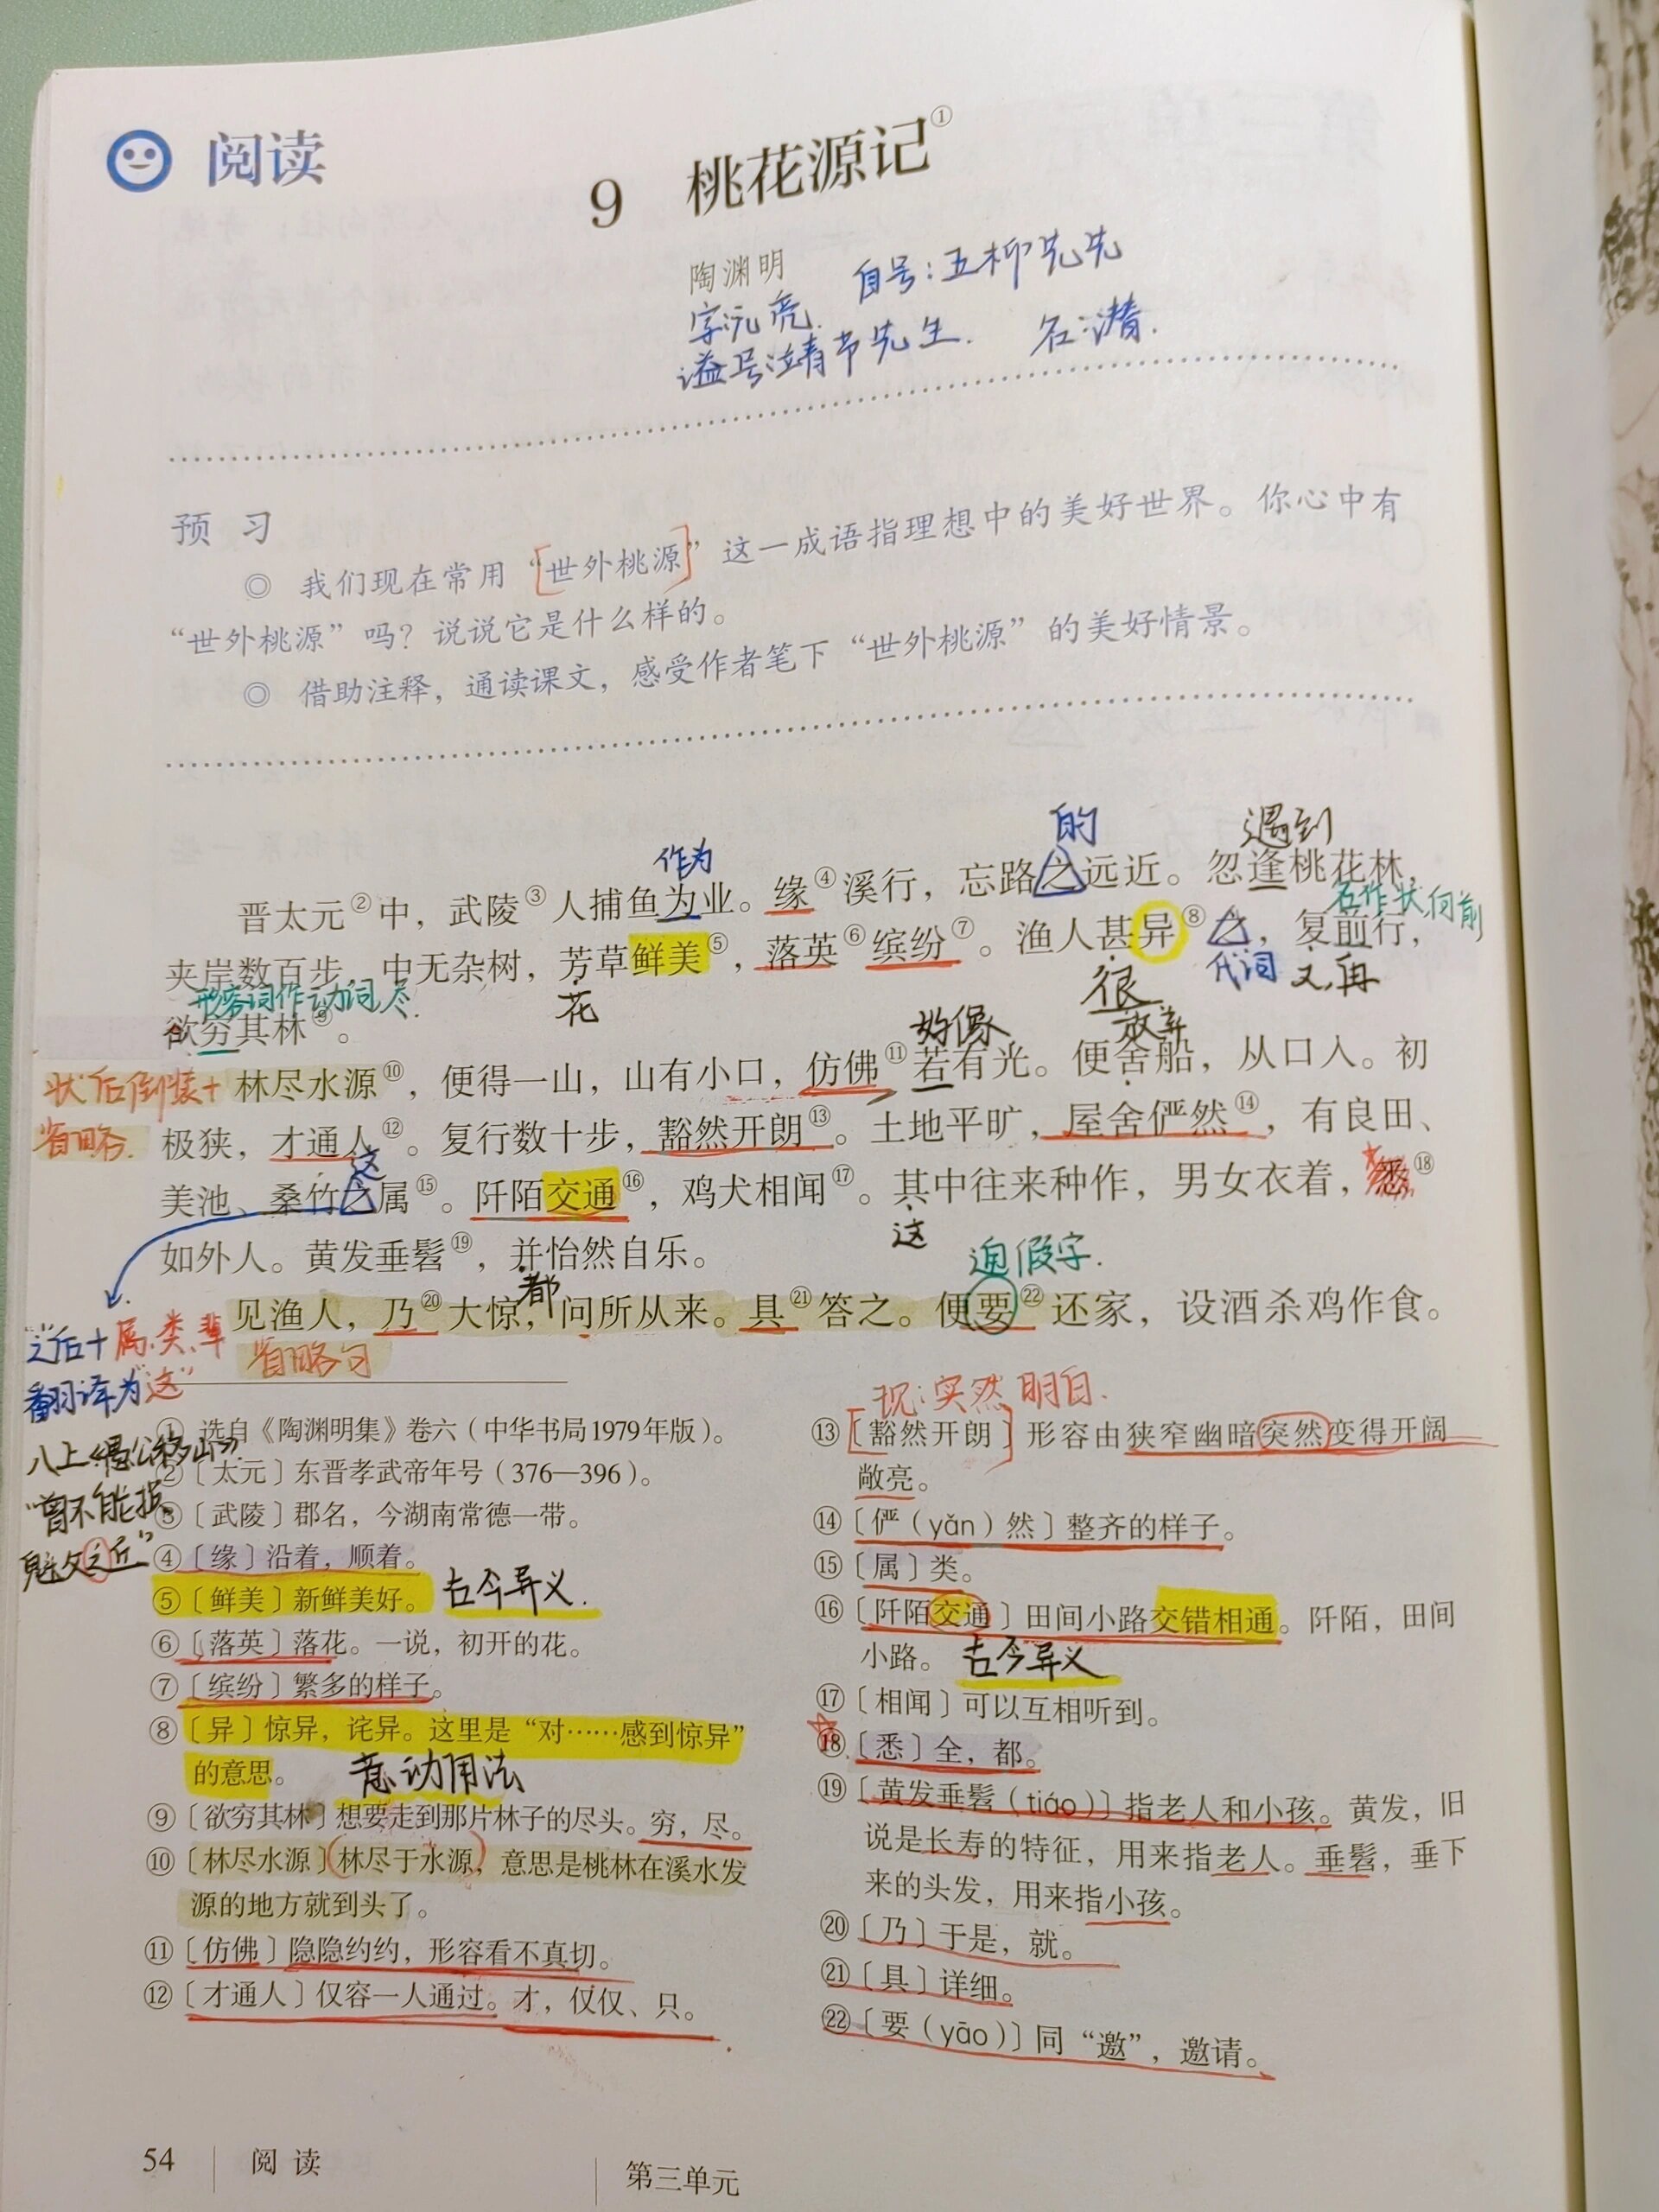 阅读
9 桃花源记①
陶渊明 自号:五柳先先
字:元亮.
谥号:靖节先生. 名:潜.
预 习
◎ 我们现在常用“世外桃源”这一成语指理想中的美好世界。你心中有
“世外桃源”吗？说说它是什么样的。
◎ 借助注释，通读课文，感受作者笔下“世外桃源”的美好情景。
作为 的 遇到
晋太元②中，武陵③人捕鱼为业。缘④溪行，忘路之远近。忽逢桃花林，
名作状,向前
夹岸数百步，中无杂树，芳草鲜美⑤，落英⑥缤纷⑦。渔人甚异⑧之，复前行，
形容词作动词,尽. 花 很 代词 又,再
欲穷其林⑨。
好像 放弃
状后倒装+ 林尽水源⑩，便得一山，山有小口，仿佛⑪若有光。便舍船，从口入。初
省略. 极狭，才通人⑫。复行数十步，豁然开朗⑬。土地平旷，屋舍俨然⑭，有良田、
这
美池、桑竹之属⑮。阡陌交通⑯，鸡犬相闻⑰。其中往来种作，男女衣着，悉⑱
这
如外人。黄发垂髫⑲，并怡然自乐。
都 通假字.
见渔人，乃⑳大惊，问所从来。具㉑答之。便要㉒还家，设酒杀鸡作食。
省略句
“之”后+属、类、辈
翻译为“这”
八上《愚公移山》
“曾不能损
魁父之丘”
① 选自《陶渊明集》卷六（中华书局1979年版）。
②〔太元〕东晋孝武帝年号（376—396）。
③〔武陵〕郡名，今湖南常德一带。
④〔缘〕沿着，顺着。
⑤〔鲜美〕新鲜美好。 古今异义.
⑥〔落英〕落花。一说，初开的花。
⑦〔缤纷〕繁多的样子。
⑧〔异〕惊异，诧异。这里是“对……感到惊异”
的意思。 意动用法
⑨〔欲穷其林〕想要走到那片林子的尽头。穷，尽。
⑩〔林尽水源〕林尽于水源，意思是桃林在溪水发
源的地方就到头了。
⑪〔仿佛〕隐隐约约，形容看不真切。
⑫〔才通人〕仅容一人通过。才，仅仅、只。
现:突然明白.
⑬〔豁然开朗〕形容由狭窄幽暗突然变得开阔
敞亮。
⑭〔俨（yǎn）然〕整齐的样子。
⑮〔属〕类。
⑯〔阡陌交通〕田间小路交错相通。阡陌，田间
小路。 古今异义
⑰〔相闻〕可以互相听到。
⑱〔悉〕全，都。
⑲〔黄发垂髫（tiáo）〕指老人和小孩。黄发，旧
说是长寿的特征，用来指老人。垂髫，垂下
来的头发，用来指小孩。
⑳〔乃〕于是，就。
㉑〔具〕详细。
㉒〔要（yāo）〕同“邀”，邀请。
54 阅读 第三单元